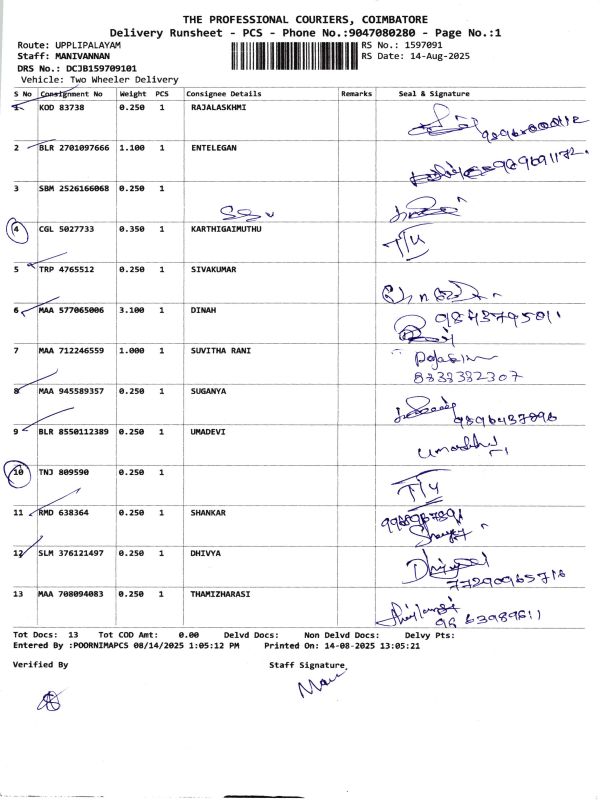 THE PROFESSIONAL COURIERS, COIMBATORE
Delivery Runsheet - PCS - Phone No.:9047080280 - Page No.:1
Route: UPPLIPALAYAM RS No.: 1597091
Staff: MANIVANNAN RS Date: 14-Aug-2025
DRS No.: DCJB159709101
Vehicle: Two Wheeler Delivery
S No Consignment No Weight PCS Consignee Details Remarks Seal & Signature
1 KOD 83738 0.250 1 RAJALASKHMI
2 BLR 2701097666 1.100 1 ENTELEGAN
3 SBM 2526166068 0.250 1
4 CGL 5027733 0.350 1 KARTHIGAIMUTHU T/U
5 TRP 4765512 0.250 1 SIVAKUMAR
6 MAA 577065006 3.100 1 DINAH
7 MAA 712246559 1.000 1 SUVITHA RANI
8838382307
8 MAA 945589357 0.250 1 SUGANYA
9 BLR 8550112389 0.250 1 UMADEVI
10 TNJ 809590 0.250 1 T/U
11 RMD 638364 0.250 1 SHANKAR
12 SLM 376121497 0.250 1 DHIVYA
13 MAA 708094083 0.250 1 THAMIZHARASI
Tot Docs: 13 Tot COD Amt: 0.00 Delvd Docs: Non Delvd Docs: Delvy Pts:
Entered By :POORNIMAPCS 08/14/2025 1:05:12 PM Printed On: 14-08-2025 13:05:21
Verified By Staff Signature